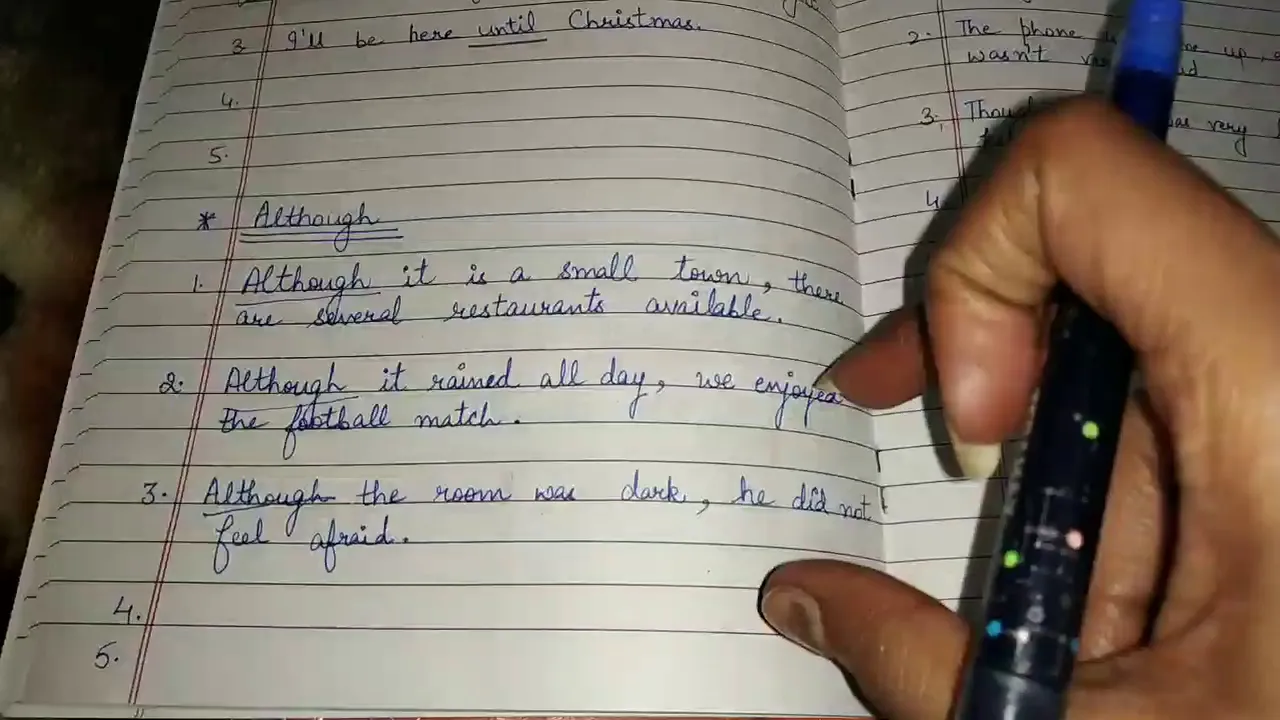 3. I'll be here until Christmas.
4.
5.
* Although
1. Although it is a small town, there
are several restaurants available.
2. Although it rained all day, we enjoyed
the football match.
3. Although the room was dark, he did not
feel afraid.
4.
5.
2. The phone up,
wasn't
3. was very
4